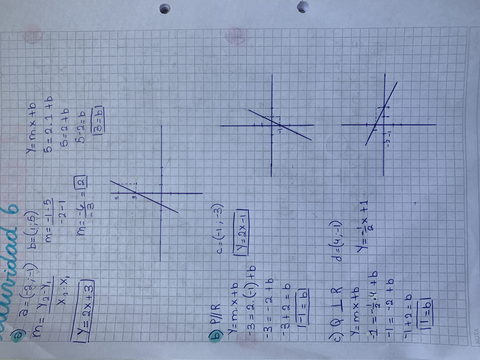 Actividad 6
a) a=(-2,-1) b=(1,5)
m= Y₂-Y₁ / X₂-X₁
m= -1-5 / -2-1
m= -6 / -3 = 2
Y=mx+b
5=2.1+b
5=2+b
5-2=b
3=b
Y=2x+3
b) P//R c=(-1,-3)
Y=mx+b
Y=2x-1
-3=2.(-1)+b
-3=-2+b
-3+2=b
-1=b
c) Q ⊥ R d=(4,-1)
Y=mx+b
Y=-1/2x+1
-1=-1/2.4+b
-1=-2+b
-1+2=b
1=b